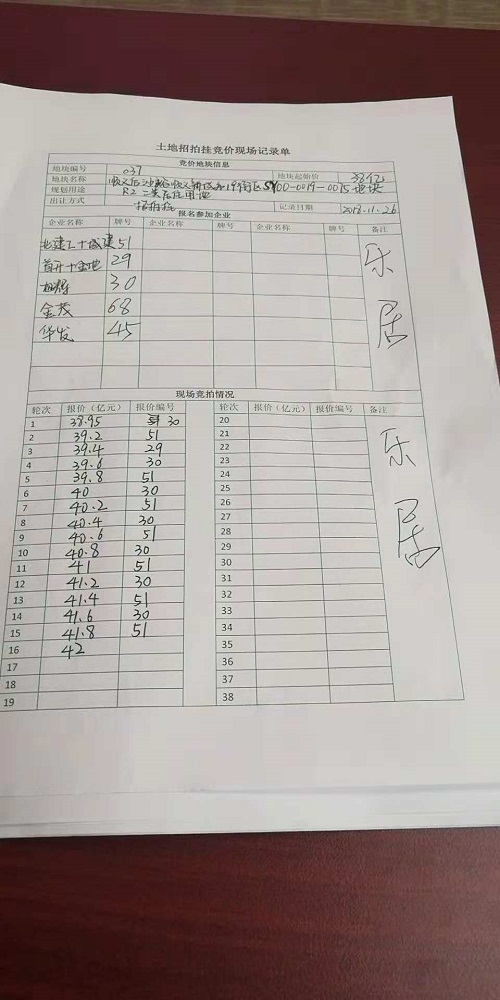 土地招拍挂竞价现场记录单
竞价地块信息
地块编号 037 地块起始价 38亿
地块名称 顺义后沙峪顺义新城第19街区SY00-0019-0015地块
规划用途 R2二类居住用地
出让方式 招拍挂 记录日期 2018.11.26
报名参加企业
企业名称 牌号 企业名称 牌号 企业名称 牌号 备注
北建工+城建 51
首开+金地 29
旭辉 30
金茂 68
华发 45
乐
居
现场竞拍情况
轮次 报价(亿元) 报价编号 轮次 报价(亿元) 报价编号 备注
1 38.95 30 20
2 39.2 51 21
3 39.4 29 22
4 39.6 30 23
5 39.8 51 24
6 40 30 25
7 40.2 51 26
8 40.4 30 27
9 40.6 51 28
10 40.8 30 29
11 41 51 30
12 41.2 30 31
13 41.4 51 32
14 41.6 30 33
15 41.8 51 34
16 42 35
17 36
18 37
19 38
乐
居